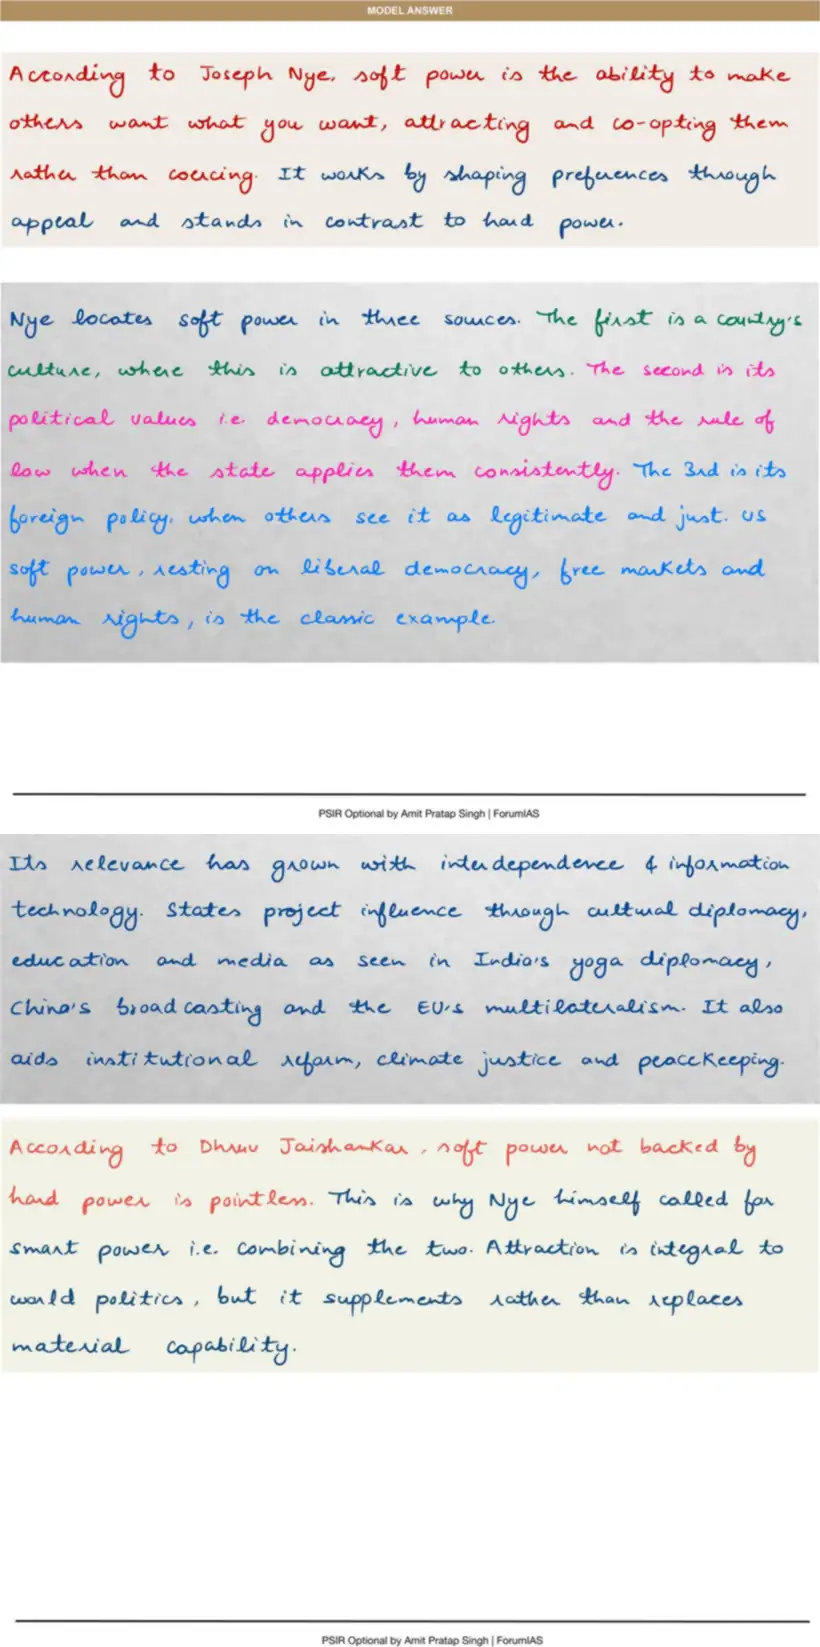 MODEL ANSWER
According to Joseph Nye, soft power is the ability to make
others want what you want, attracting and co-opting them
rather than coercing. It works by shaping preferences through
appeal and stands in contrast to hard power.
Nye locates soft power in three sources. The first is a country's
culture, where this is attractive to others. The second is its
political values i.e. democracy, human rights and the rule of
law when the state applies them consistently. The 3rd is its
foreign policy, when others see it as legitimate and just. US
soft power, resting on liberal democracy, free markets and
human rights, is the classic example.
PSIR Optional by Amit Pratap Singh | ForumIAS
Its relevance has grown with interdependence & information
technology. States project influence through cultural diplomacy,
education and media as seen in India's yoga diplomacy,
China's broadcasting and the EU's multilateralism. It also
aids institutional reform, climate justice and peacekeeping.
According to Dhruv Jaishankar, soft power not backed by
hard power is pointless. This is why Nye himself called for
smart power i.e. combining the two. Attraction is integral to
world politics, but it supplements rather than replaces
material capability.
PSIR Optional by Amit Pratap Singh | ForumIAS